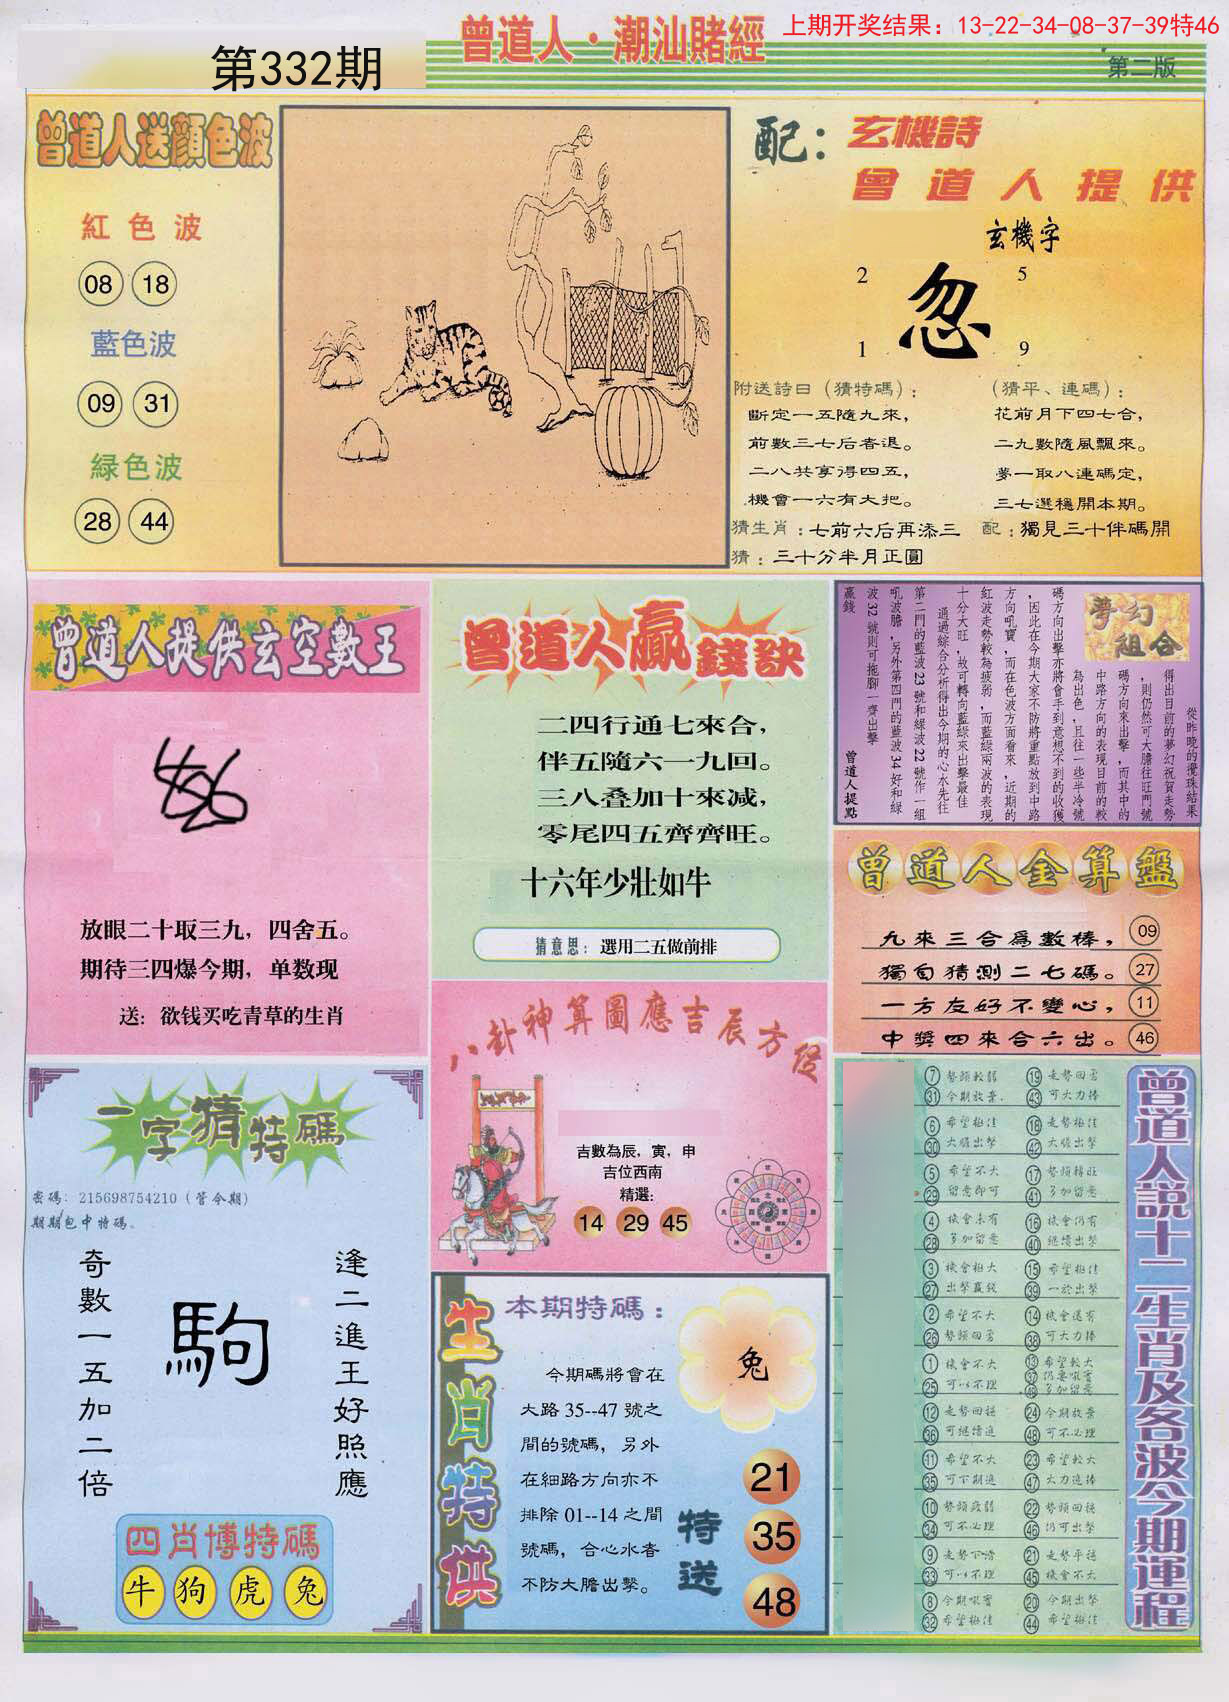 上期开奖结果：13-22-34-08-37-39特46
曾道人·潮汕賭經
第332期
第二版
曾道人送顔色波
紅色波
08 18
藍色波
09 31
緑色波
28 44
配：玄機詩
曾道人提供
玄機字
2 5
忽
1 9
附送詩曰（猜特碼）：
斷定一五隨九來，
前數三七后者退。
二八共享得四五，
機會一六有大把。
（猜平、連碼）：
花前月下四七合，
二九數隨風飄來。
夢一取八連碼定，
三七選穩開本期。
猜生肖：七前六后再添三
配：獨見三十伴碼開
猜：三十分半月正圓
曾道人提供玄空數王
放眼二十取三九，四舍五。
期待三四爆今期，单数现
送：欲钱买吃青草的生肖
曾道人贏錢訣
二四行通七來合，
伴五隨六一九回。
三八叠加十來减，
零尾四五齊齊旺。
十六年少壯如牛
猜意思：選用二五做前排
夢幻組合
從昨晚的攪珠結果
得出目前的夢幻祝賀走勢
，則仍然可大膽往旺門號
碼方向來出擊，而其中的
中路方向的表現目前的較
為出色，且往一些半冷號
碼方向出擊亦將會手到意想不到的收獲
，因此在今期大家不防將重點放到中路
方向吼寶，而在色波方面看來，近期的
紅波走勢較為疲弱，而藍綠兩波的表現
十分大旺，故可轉向藍綠來出擊最佳
通過綜合分析得出今期的心水先往
第二門的藍波23號和綠波22號作一組
吼波膽，另外第四門的藍波34好和綠
波32號則可拖腳一齊出擊
贏錢
曾道人提點
曾道人金算盤
九來三合爲數棒， 09
獨自猜測二七碼。 27
一方友好不變心， 11
中獎四來合六出。 46
八卦神算圖應吉辰方位
吉數為辰，寅，申
吉位西南
精選：
14 29 45
一字猜特碼
密碼：215698754210（管今期）
期期包中特碼。
奇數一五加二倍
駒
逢二進王好照應
四肖博特碼
牛 狗 虎 兔
生肖特供
本期特碼：
兔
今期碼將會在
大路35--47號之
間的號碼，另外
在細路方向亦不
排除01--14之間
號碼，合心水者
不防大膽出擊。
特送
21
35
48
曾道人説十二生肖及各波今期運程
7 勢頭較弱
31 今期放棄
19 走勢回勇
43 可大力捧
6 希望極佳
30 大膽出擊
18 走勢極佳
42 大膽出擊
5 希望不大
29 留意即可
17 勢頭轉旺
41 多加留意
4 機會未有
28 多加留意
16 機會仍有
40 繼續出擊
3 機會極大
27 出擊贏錢
15 希望極佳
39 一於出擊
2 希望不大
26 勢頭回勇
14 機會還有
38 可大力捧
1 機會不大
25 可以不理
13 希望較大
37 仍要吼實
49 多加留意
12 走勢回穩
36 可繼續追
24 今期放棄
48 可不必理
11 希望不大
35 可下期追
23 希望較大
47 大力追捧
10 勢頭疲弱
34 可不必理
22 勢頭回穩
46 仍可出擊
9 走勢下滑
33 可以不理
21 走勢平穩
45 機會不大
8 今期吼實
32 希望極佳
20 今期出擊
44 希望極佳